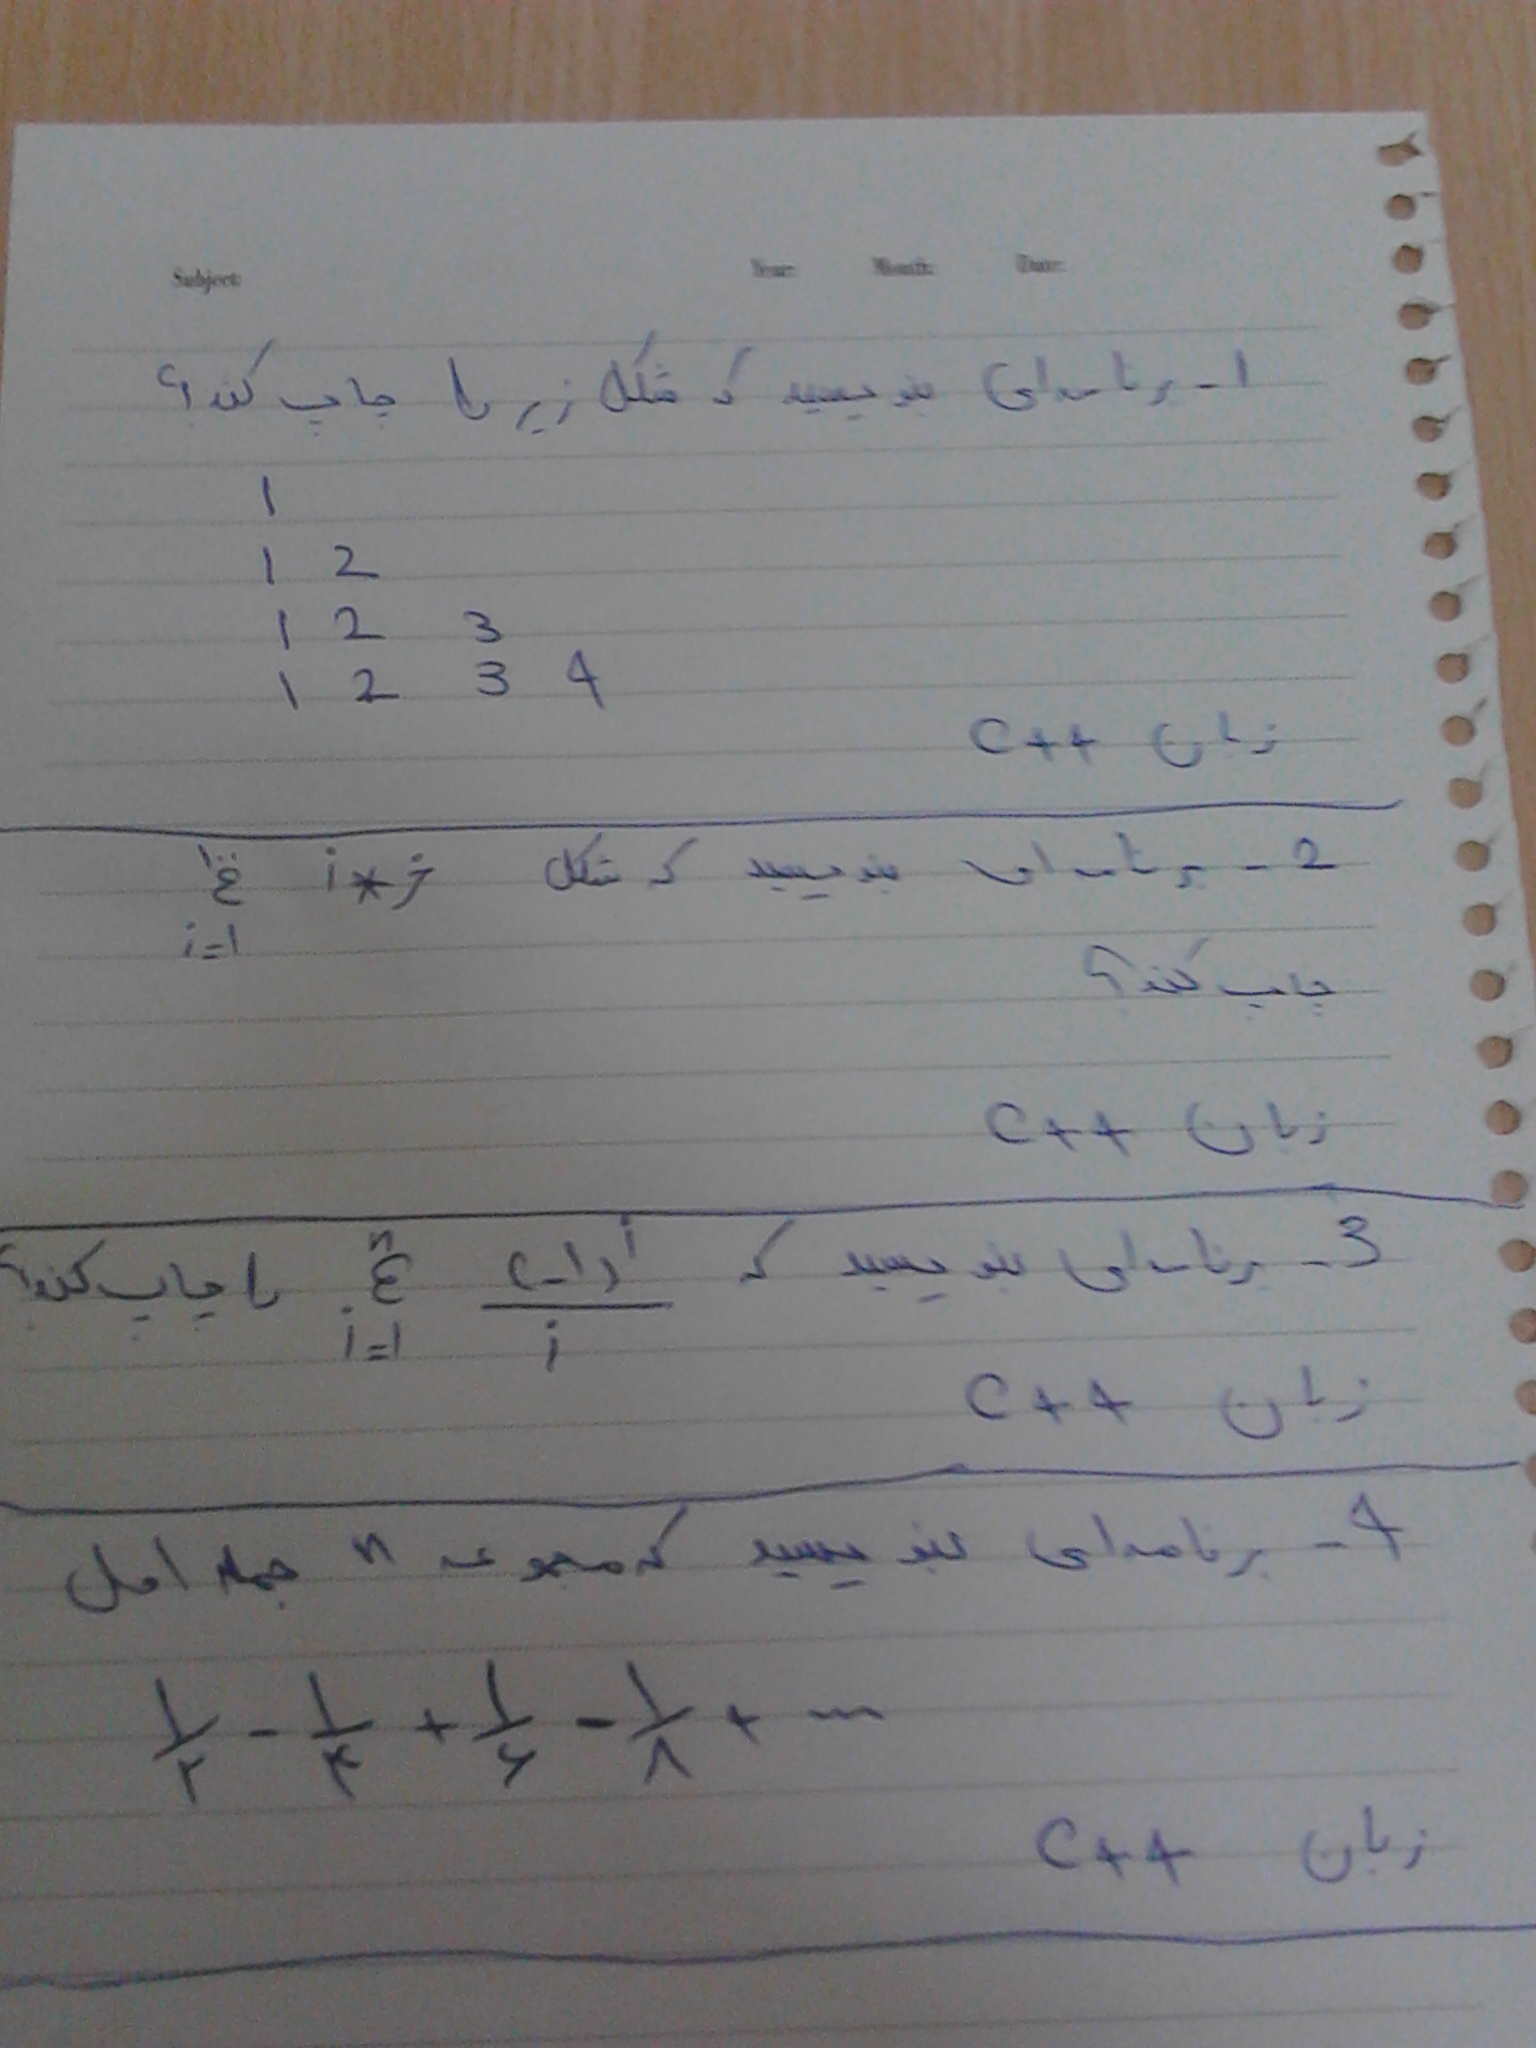 Subject: Year: Month: Date:
1- برنامه ای بنویسید که شکل زیر را چاپ کند؟
1
1 2
1 2 3
1 2 3 4
زبان C++
2- برنامه ای بنویسید که شکل i*j Σ
i=1
چاپ کند؟
زبان C++
3- برنامه ای بنویسید که (-1)^i / i Σ n i=1 را چاپ کند؟
زبان C++
4- برنامه ای بنویسید که مجموعه n جمله اول
۱/۲ - ۱/۴ + ۱/۶ - ۱/۸ + ...
زبان C++